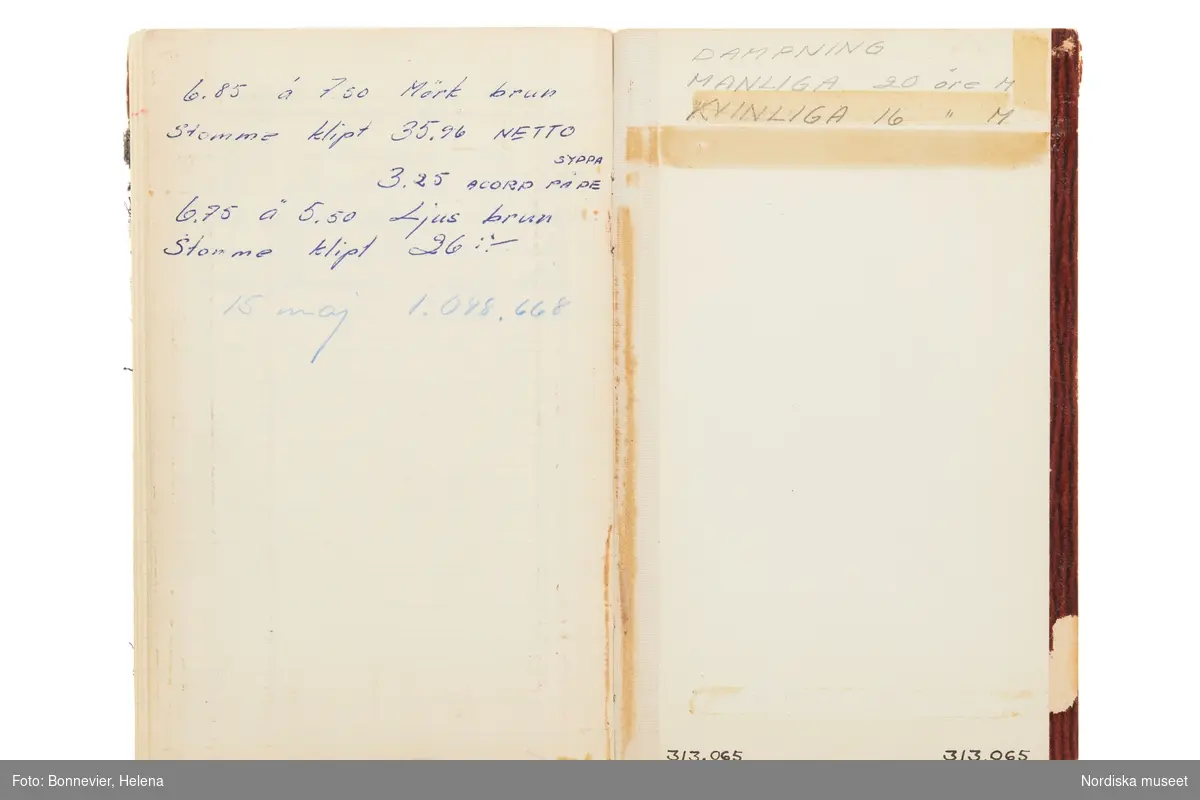 6.85 á 7 50 Mörk brun
Stomme klipt 35.96 NETTO
SYPPA
3.25 ACORD PÅ DE
6.75 á 5.50 Ljus brun
Stomme klipt 26:-
15 maj 1.098.668
DAMPNING
MANLIGA 20 öre M
KVINLIGA 16 " M
313.065 313.065
Foto: Bonnevier, Helena
Nordiska museet